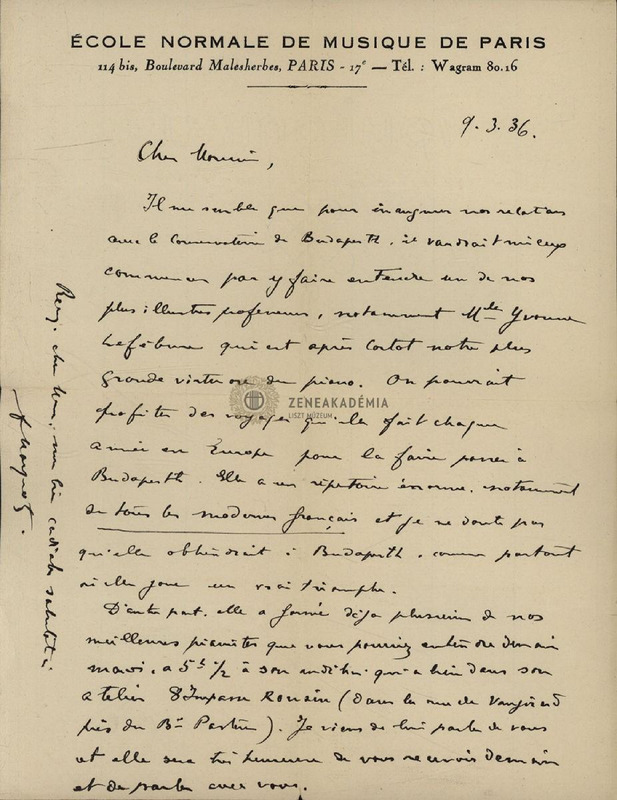 ÉCOLE NORMALE DE MUSIQUE DE PARIS
114 bis, Boulevard Malesherbes, PARIS - 17e — Tél. : Wagram 80.16
9. 3. 36.
Cher Monsieur,
Il me semble que pour inaugurer nos relations
avec le Conservatoire de Budapesth, il vaudrait mieux
commencer par y faire entendre un de nos
plus illustres professeurs, notamment Mlle Yvonne
Lefébure qui est après Cortot notre plus
grande virtuose du piano. On pourrait
profiter des voyages qu'elle fait chaque
année en Europe pour la faire passer à
Budapesth. Elle a un répertoire énorme, notamment
de tous les modernes français et je ne doute pas
qu'elle obtiendrait à Budapesth, comme partout
où elle joue un vrai triomphe.
D'autre part, elle a formé déjà plusieurs de nos
meilleures pianistes que vous pourriez entendre demain
mardi, a 5h 1/2 à son audition qui a lieu dans son
atelier 8 Impasse Ronsin (dans la rue de Vaugirard
près du Bd Pasteur). Je viens de lui parler de vous
et elle sera très heureuse de vous recevoir demain
et de parler avec vous.
Recev. cher Mons. mes bien cordiales salutations
ZENEAKADÉMIA
LISZT MÚZEUM